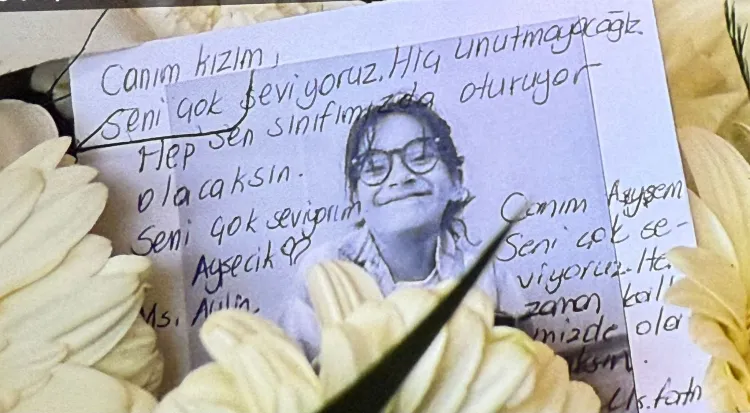 Canım kızım,
Seni çok seviyoruz. Hiç unutmayacağız.
Hep sen sınıfımızda oturuyor
olacaksın.
Seni çok seviyorum
Ayşecik ♡
Ms. Aylin.
Canım Ayşem
Seni çok se-
viyoruz. He
zaman kal
mizde ola
ksın.